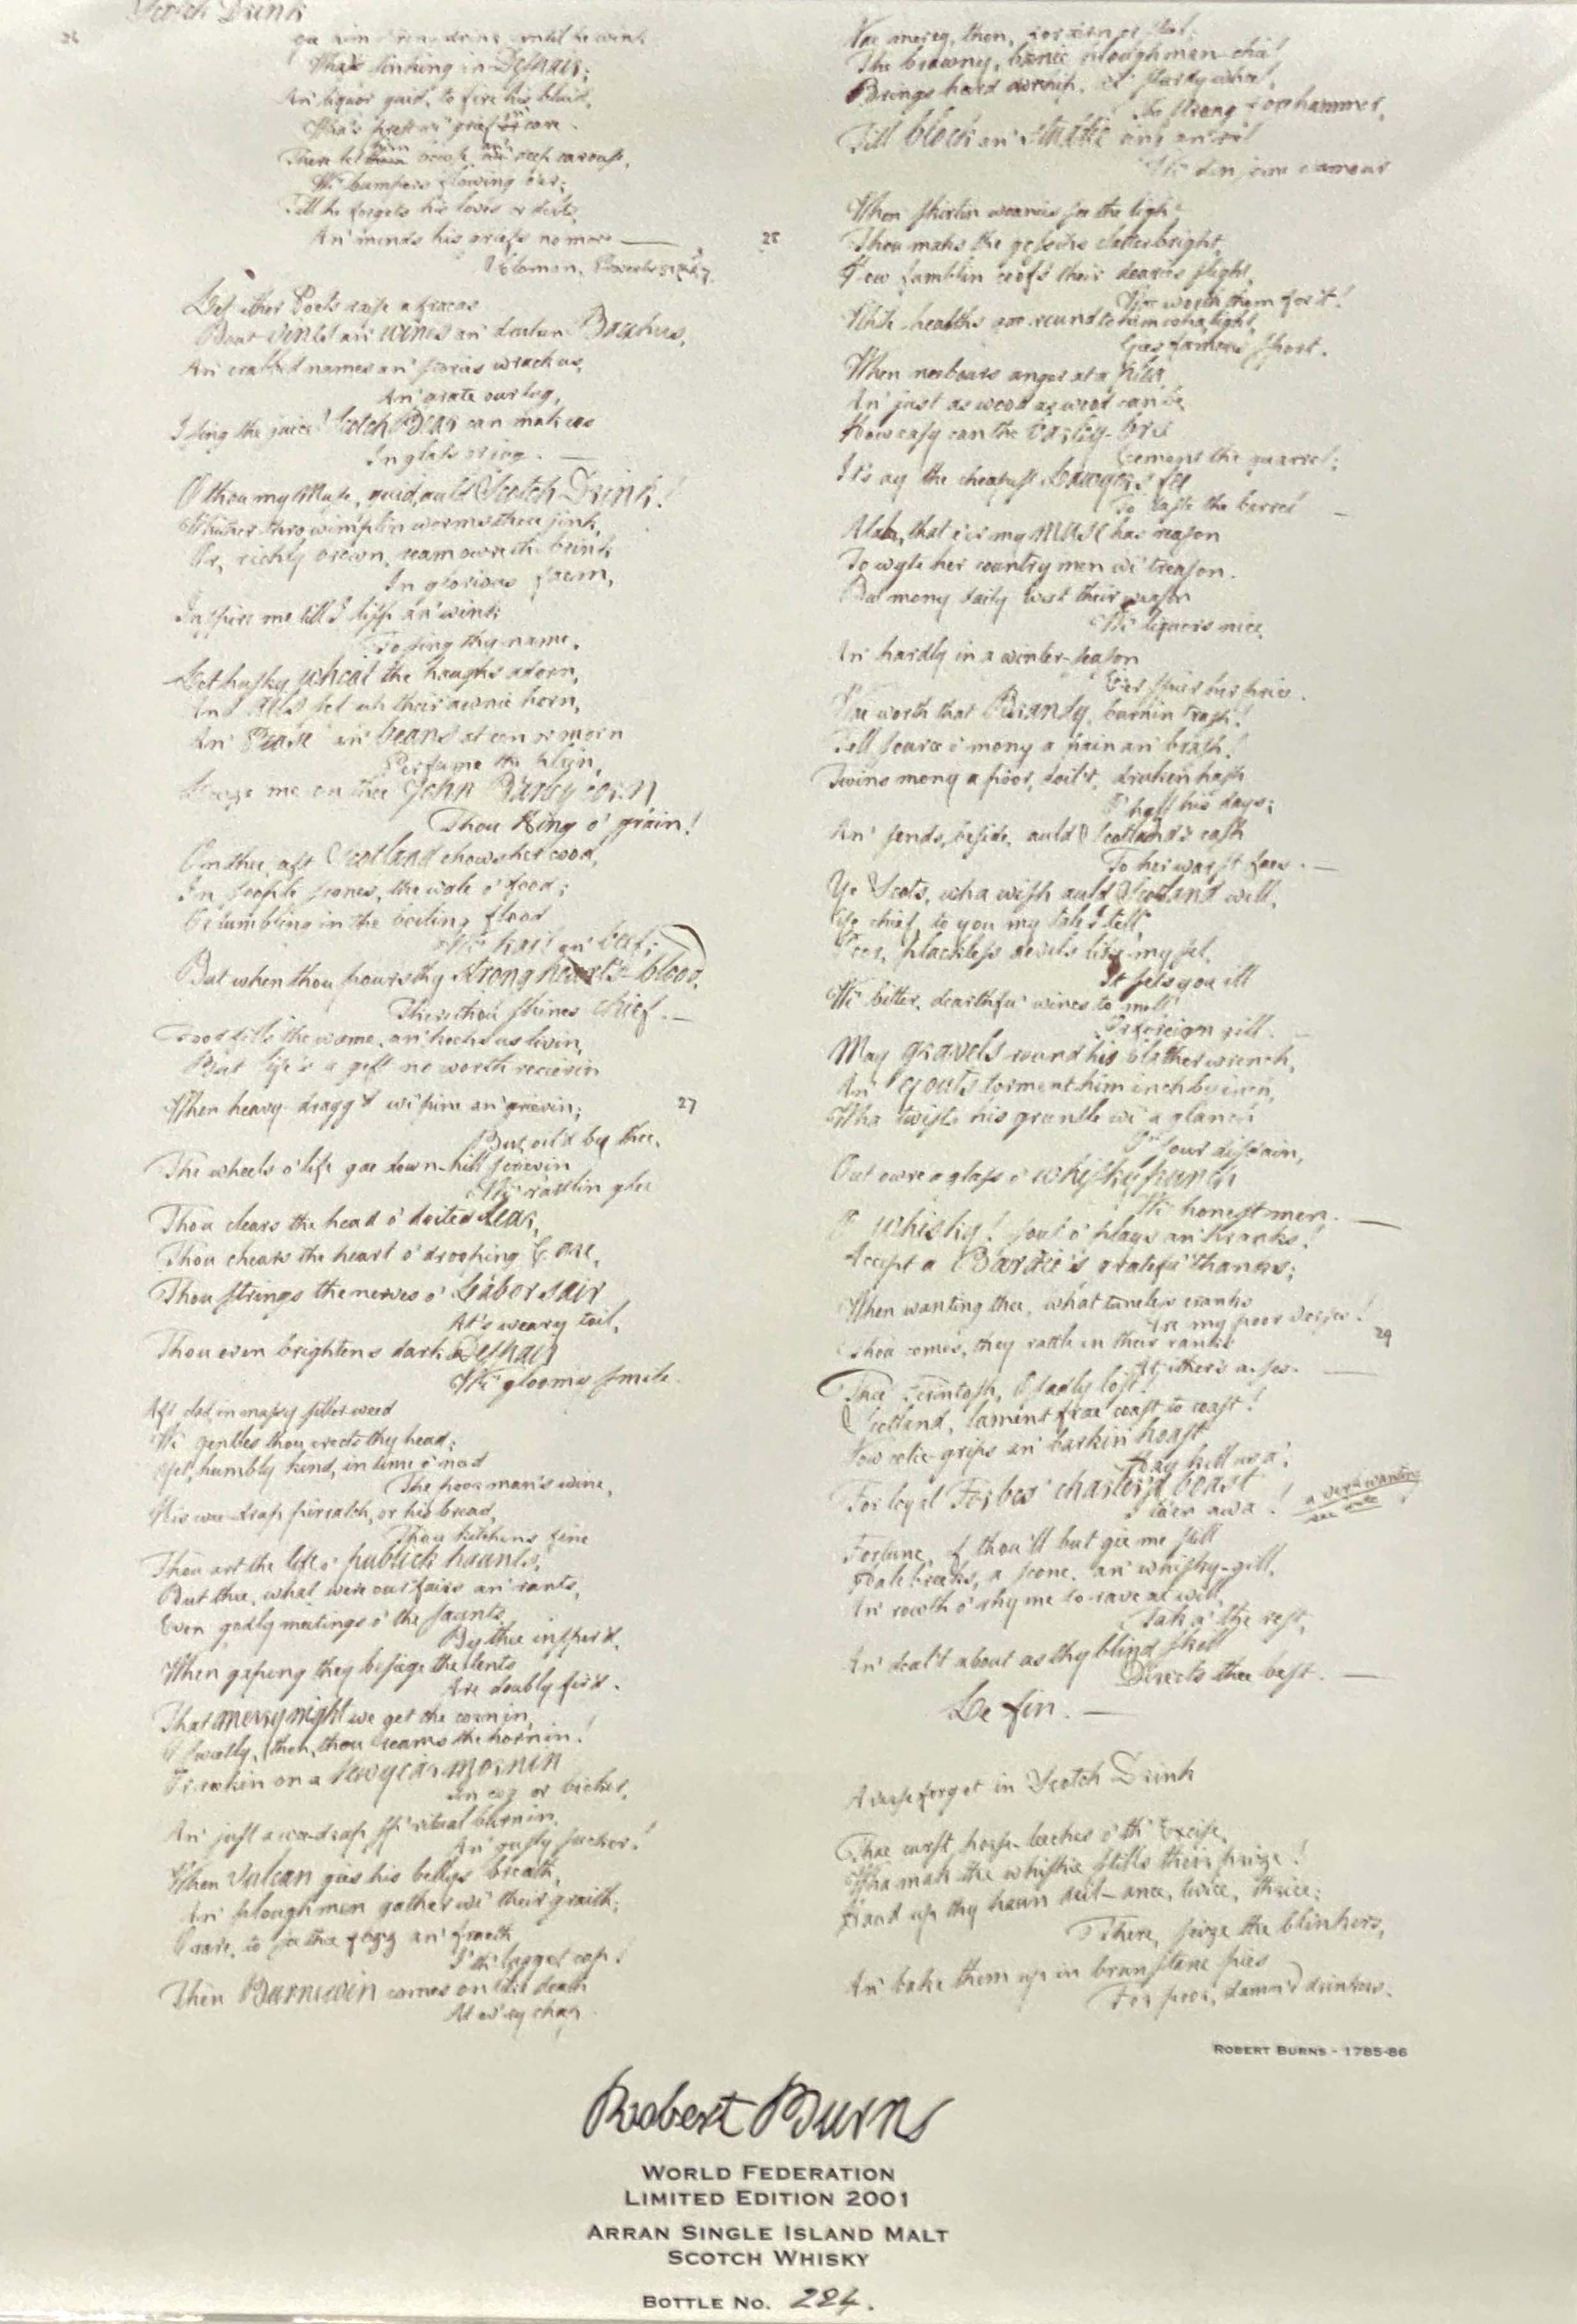 Scotch Drink
26
Gie him strong drink until he wink
That's sinking in Despair;
An' liquor guid, to fire his bluid,
That's prest wi' grief an' care.
There let him bowse an' deep carouse,
Wi' bumpers flowing o'er;
Till he forgets his loves or debts,
An' minds his griefs no more —
Solomon, Proverbs 31: 6, 7.
Let other Poets raise a fracas
'Bout vines an' wines an' drunken Bacchus,
An' crabbed names an' stories wrack us,
An' grate our lug,
I sing the juice Scotch Bear can mak us
In glass or jug. —
O thou my Muse, guid, auld Scotch Drink!
Whether thro' wimplin worms thou jink,
Or, richly brown, ream owre the brink
In glorious faem,
Inspire me till I lisp an' wink
To sing thy name.
Let husky Wheat the haughs adorn,
And Aits set up their awnie horn,
An' Pease an' beans at een or morn
Perfume the plain,
Leeze me on thee John Barleycorn,
Thou King o' grain!
On thee, aft Scotland chows her cood,
In souple scones, the wale o' food;
Or tumbling in the boiling flood
Wi' kail an' beef;
But when thou pours thy strong heart's-blood,
There thou shines chief. —
Food fills the wame, an' keeps us livin,
But life's a gift no worth recievin
When heavy-dragg'd wi' pine an' grievin;
27
But oil'd by thee,
The wheels o' life gae down-hill screvin
Wi' rattlin glee
Thou clears the head o' doited Lear,
Thou chears the heart o' drooping Care,
Thou strings the nerves o' Labor sair
At's weary toil,
Thou even brightens dark Despair
Wi' gloomy smile.
Aft clad in massy siller weed
Wi' gentles thou erects thy head;
Yet, humbly kind, in time o' need
The poor man's wine,
His wee drap pirratch, or his bread,
Thou kitchens fine
Thou art the life o' publick haunts,
But thee, what were our fairs an' rants,
Even godly meetings o' the saunts
By thee inspir'd,
When gaping they besiege the tents
Are doubly fir'd.
That merry night we get the corn in,
O sweetly, then, thou reams the horn in!
Or reekin on a New-year mornin
In cog or bicker,
An' just a wee-drap sp'ritual burn in,
An' gusty sucker!
When Vulcan gies his bellys breath,
An' ploughmen gather wi' their graith;
O rare, to see thee fizz an' freath
I' th' lugget cap!
Then Burnewin comes on like death
At ev'ry chap.
Nae mercy, then, for airn or steel;
The brawny, banie ploughman-chiel
Brings hard owrehip, wi' sturdy wheel,
The strong forehammer,
Till block an' studdie ring an' reel
Wi' dinsome clamour
When skirlin weanies see the light
28
Thou maks the gossips clatter bright,
How fumblin coofs their dearies slight,
Wae worth them for't!
While healths gae round to him wha, tight,
Gies famous sport.
When neebours anger at a plea,
An' just as wood as wood can be,
How easy can the barley-brie
Cement the quarrel;
It's ay the cheapest Lawyer's fee
To taste the barrel —
Alake, that e'er my Muse has reason
To wyte her countrymen wi' treason.
But mony daily weet their weason
Wi' liquors nice,
An' hardly in a winter-season
E'er spier her price.
Wae worth that Brandy, burnin trash!
Fell source o' mony a pain an' brash!
Twins mony a poor, doil't, druken hash
O' half his days;
An' sends, beside, auld Scotland's cash
To her warst faes. —
Ye Scots, wha wish auld Scotland well,
Ye chief, to you my tale I tell,
Poor, plackless devils like mysel,
It sets you ill
Wi' bitter, dearthfu' wines to mell
Or foreign gill. —
May gravels round his blather wrench,
An' gouts torment him inch by inch,
Wha twists his gruntle wi' a glunch
O' sour disdain,
Out owre a glass o' whisky-punch
Wi' honest men. —
O Whisky! soul o' plays an' pranks!
Accept a Bardie's gratefu' thanks;
When wanting thee, what tuneless cranks
Are my poor verses!
Thou comes, they rattle in their ranks
29
At ither's a-ses. —
Thee Ferintosh, O sadly lost!
Scotland, lament frae coast to coast!
Now colic-grips an' barkin hoast
May kill us a';
For legal Forbes' charter'd boast
Is taen awa!
a verse wanting
Fortune, if thou'll but gie me still
Hale breeks, a scone, an' whisky-gill,
An' rowth o' rhyme to rave at will,
Tak a' the rest,
An' deal't about as thy blind skill
Directs thee best. —
Le fin. —
A verse forgot in Scotch Drink
Thae curst horse-leeches o' th' Excise,
Wha mak the whiskie stills their prize!
Haud up thy haun deil — ance, twice, thrice;
There, seize the blinkers,
An' bake them up in brunstane pies
For poor, damn'd drinkers.
Robert Burns - 1785-86
Robert Burns
World Federation
Limited Edition 2001
Arran Single Island Malt
Scotch Whisky
Bottle No. 224.